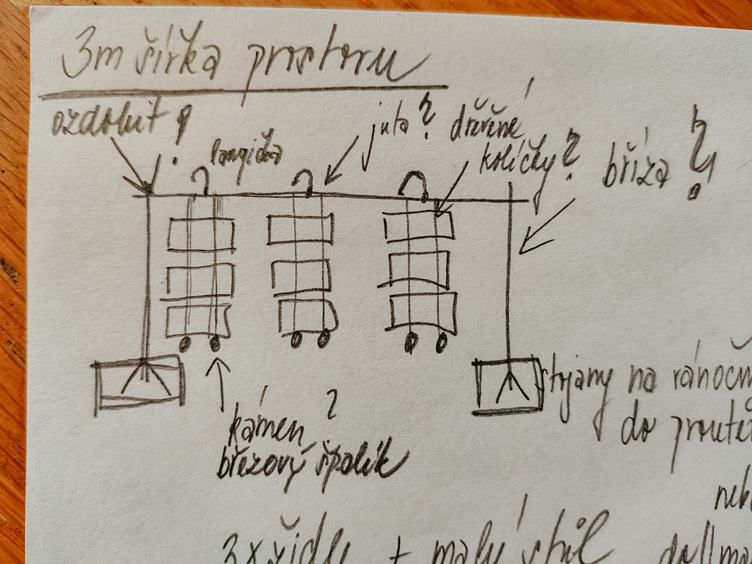 3m šířka prostoru
ozdobit ?
juta?
dřevěné
kolíčky?
bříza ?
kámen ?
březový špalík
stojany na vánočn
do proute
neb
3x židle + malý stůl